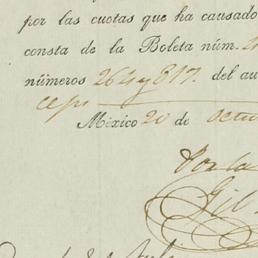 por las cuotas que ha causado
consta de la Boleta núm.
números 264 y 817. del au
México 20 de octu
Por la
Gil